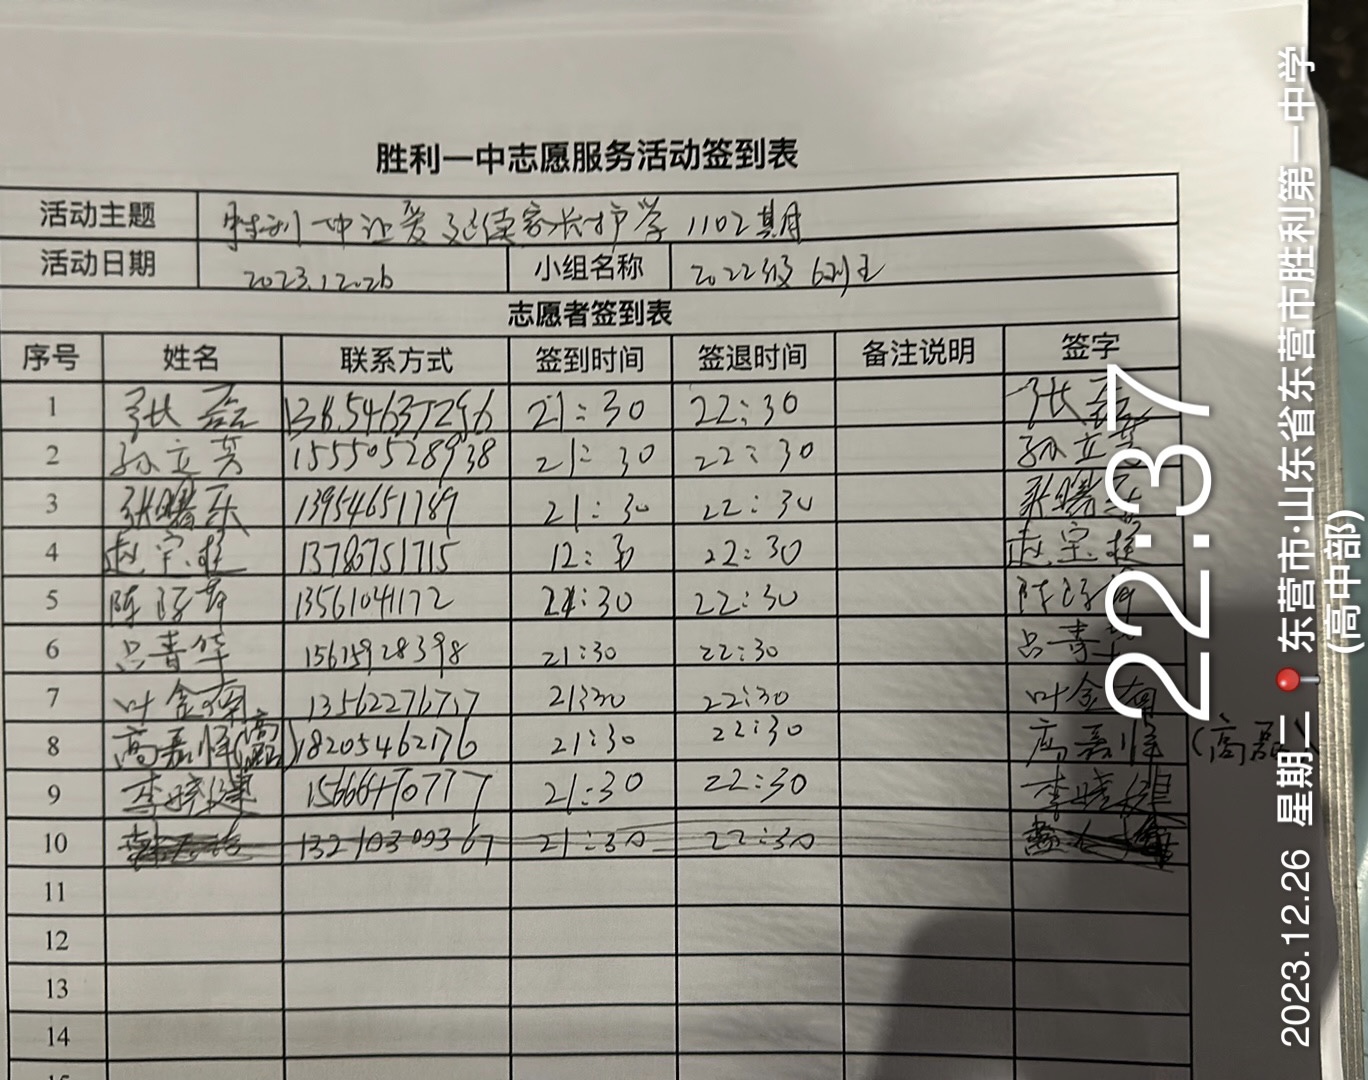 胜利一中志愿服务活动签到表
活动主题 胜利一中让爱延续家长护学1102期
活动日期 2023.12.26 小组名称 2022级6班
志愿者签到表
序号 姓名 联系方式 签到时间 签退时间 备注说明 签字
1 张磊 21:30 22:30 张磊
2 孙立芳 15550528938 21:30 22:30 孙立芳
3 张曙乐 13954651789 21:30 22:30 张曙乐
4 赵宗 13780751715 12:30 22:30 赵宗
5 陈 13561041172 21:30 22:30 陈
6 吕青华 15615928398 21:30 22:30 吕青华
7 叶金 13562276757 21:30 22:30 叶金
8 高嘉怿(高磊) 18205462176 21:30 22:30 高嘉怿(高磊)
9 李晓健 15666470777 21:30 22:30 李晓健
10 13210300367 21:30 22:30
11
12
13
14
22:37
2023.12.26 星期二 东营市·山东省东营市胜利第一中学
(高中部)